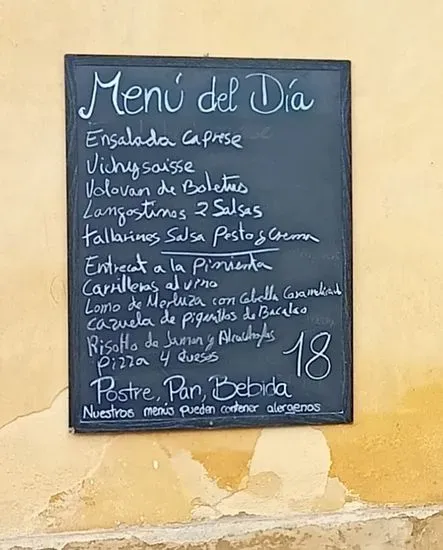 Menú del Día
Ensalada Caprese
Vichysoisse
Volovan de Boletus
Langostinos 2 Salsas
Tallarines Salsa Pesto y Crema
Entrecot a la Pimienta
Carrilleras al vino
Lomo de Merluza con Cebolla Caramelizada
Cazuela de Piquillos de Bacalao
Risotto de Jamon y Alcachofas
Pizza 4 Quesos
18
Postre, Pan, Bebida
Nuestros menús pueden contener alergenos